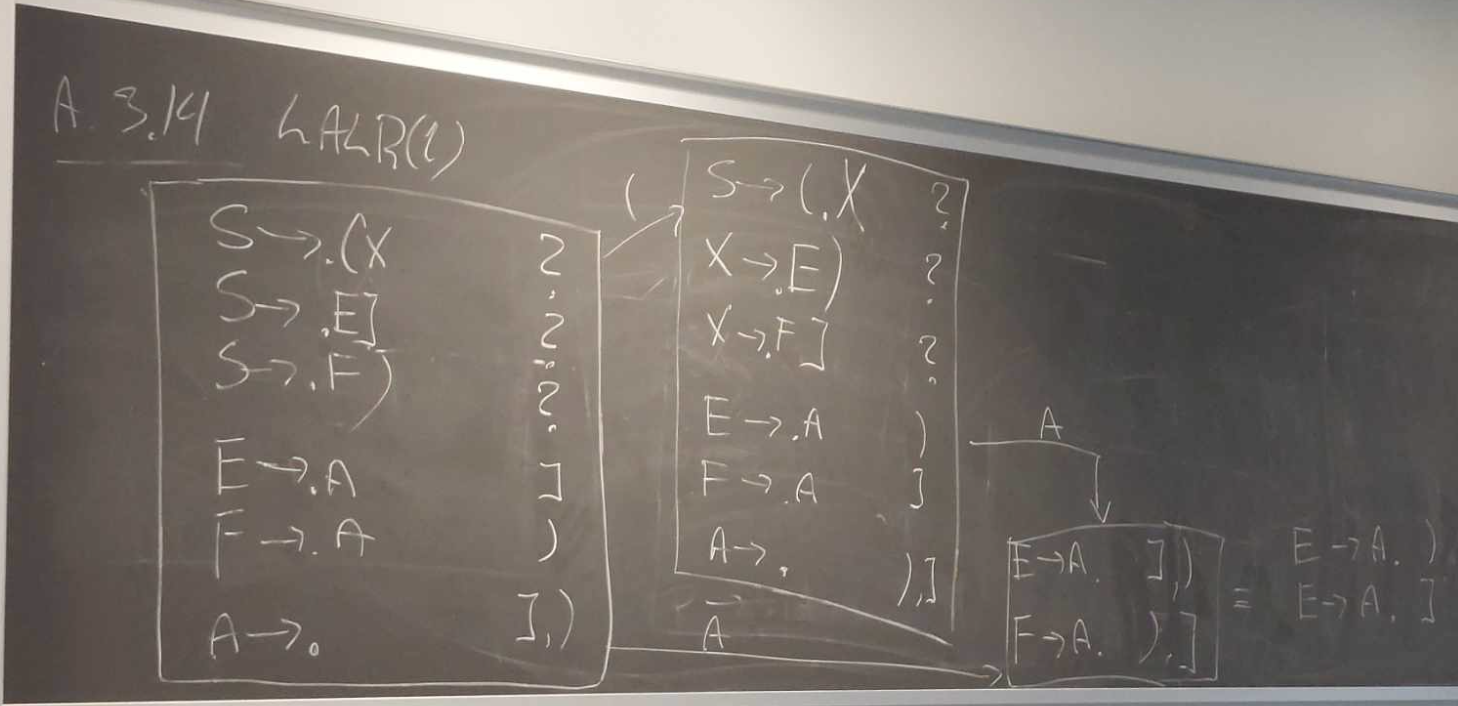 A. 3.14 LALR(1)
S→.(X ?
S→.E] ?
S→.F) ?
E→.A ]
F→.A )
A→. ],)
(
S→(.X ?
X→.E) ?
X→.F] ?
E→.A )
F→.A ]
A→. ),]
A
A
E→A. ],)
F→A. ),]
≡
E→A. )
E→A. ]